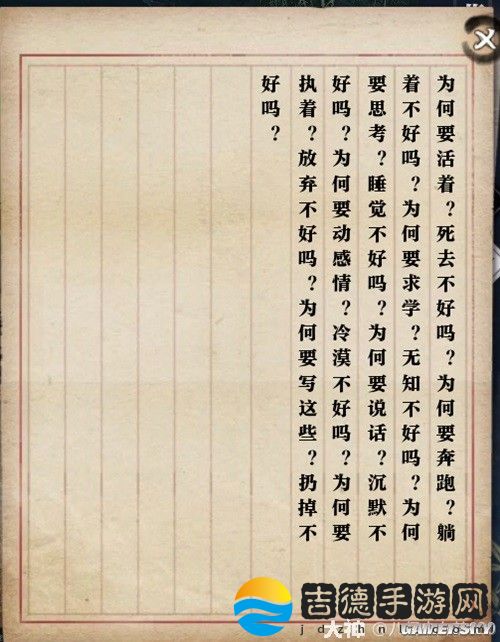 为何要活着？死去不好吗？为何要奔跑？躺
着不好吗？为何要求学？无知不好吗？为何
要思考？睡觉不好吗？为何要说话？沉默不
好吗？为何要动感情？冷漠不好吗？为何要
执着？放弃不好吗？为何要写这些？扔掉不
好吗？
吉德手游网
jdzhn
大神
GAMERSKY